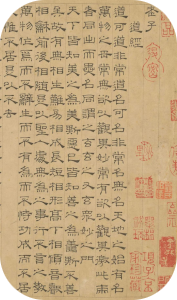 老子
道經
道可道非常道名可名非常名無名天地之始有名
萬物之母常無欲以觀其妙常有欲以觀其徼此兩
者同出而異名同謂之玄玄之又玄衆妙之門
天下皆知美之爲美斯惡已皆知善之爲善斯不善
已故有無相生難易相成長短相形高下相傾音聲
相和前後相隨是以聖人處無爲之事行不言之教
萬物作焉而不辭生而不有爲而不恃功成而不居
夫惟不居是以不去